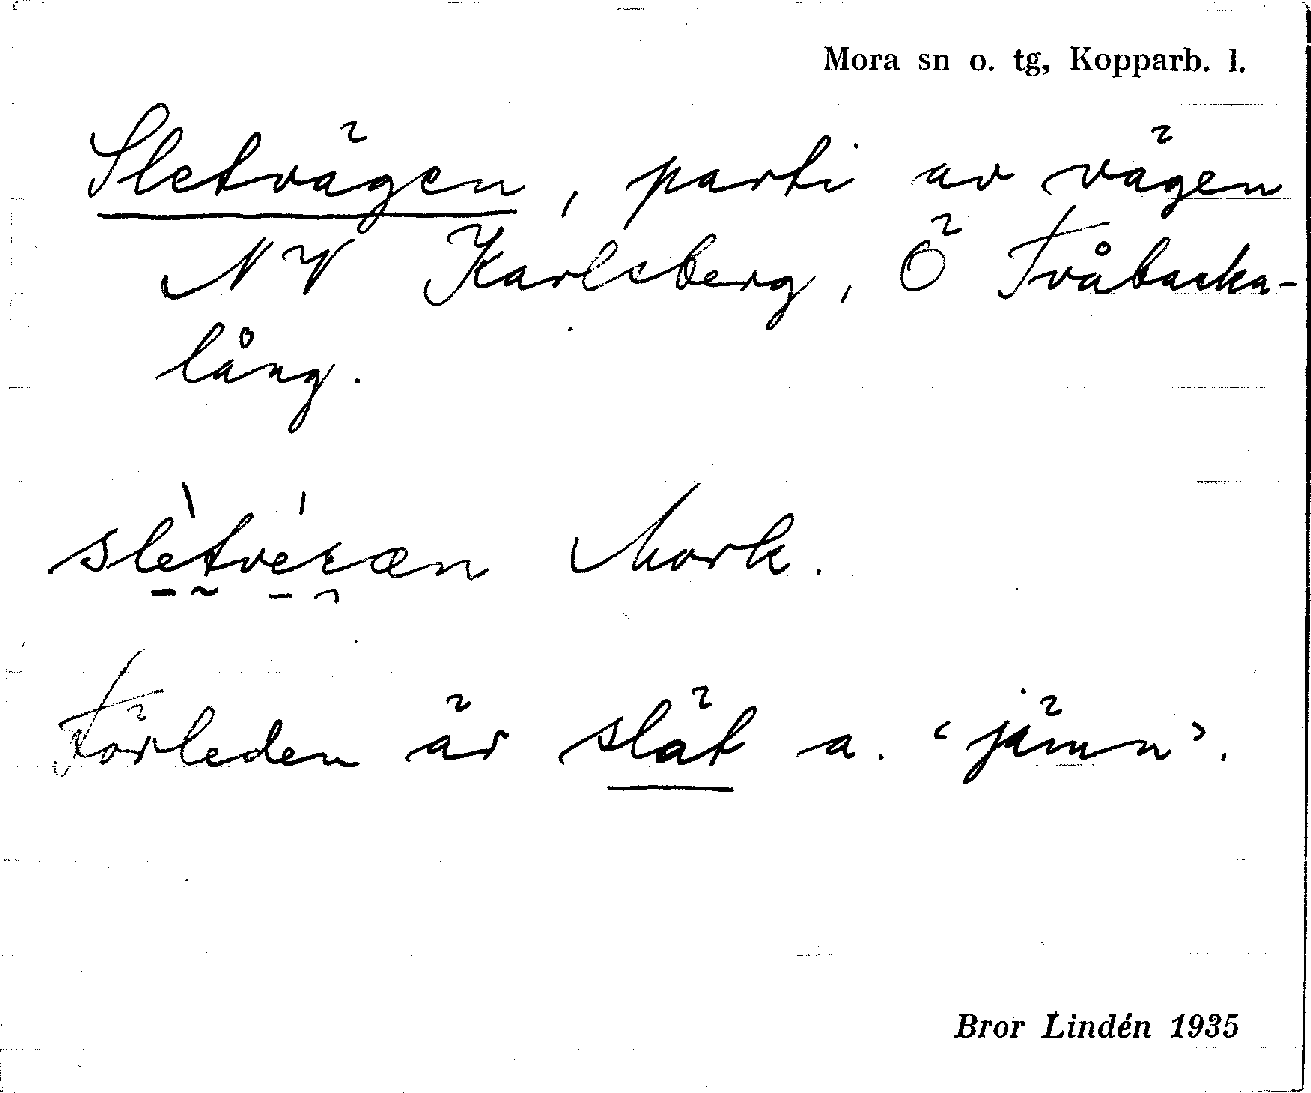 Mora sn o. tg, Kopparb. l.
Sletvägen, parti av vägen
NV Karlsberg, Ö Tvåbacka-
lång.
slètvéræn Mork.
Förleden är slät a. ‘jämn’.
Bror Lindén 1935